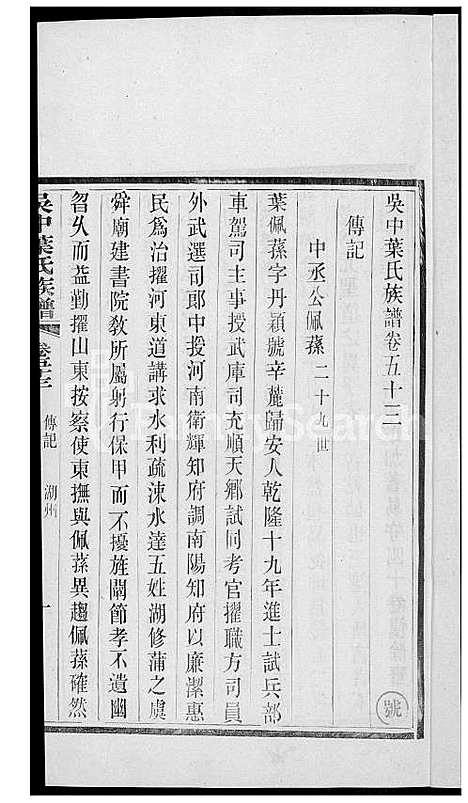 吳中葉氏族譜卷五十三
號
傳記
中丞公佩蓀 二十九世
葉佩蓀字丹穎號辛麓歸安人乾隆十九年進士試兵部
車駕司主事授武庫司充順天鄉試同考官擢職方司員
外武選司郎中授河南衛輝知府調南陽知府以廉潔惠
民爲治擢河東道講求水利疏涑水達五姓湖修蒲之虞
舜廟建書院敎所屬躬行保甲而不擾旌闡節孝不遺幽
智久而益勤擢山東按察使東撫與佩蓀異趨佩蓀確然
吳中葉氏族譜 卷五十三 傳記 湖州 一
FamilySearch